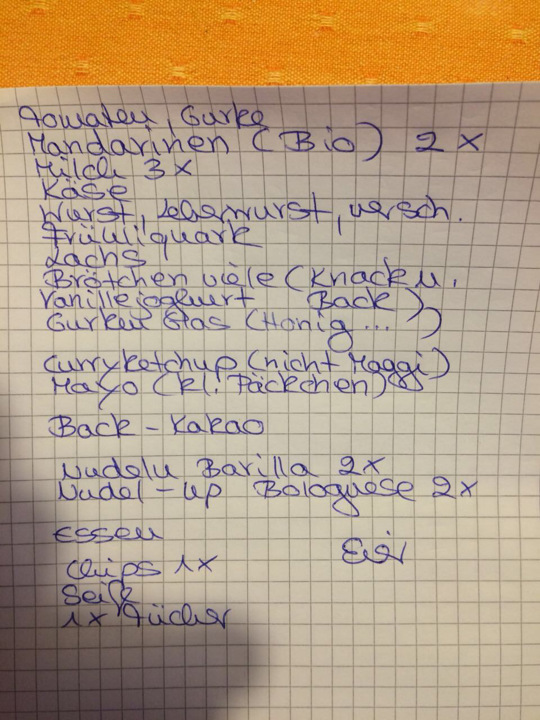 Tomaten, Gurke
Mandarinen (Bio) 2x
Milch 3x
Käse
Wurst, Leberwurst, versch.
Früüliquark
Lachs
Brötchen viele (Knack u.
Vanillejoghurt Back)
Gurken Glas (Honig...)
Curryketchup (nicht Maggi)
Mayo (kl. Päckchen)
Back-Kakao
Nudeln Barilla 2x
Nudel-up Bolognese 2x
Essen
Eier
Chips 1x
Seife
1x Tücher